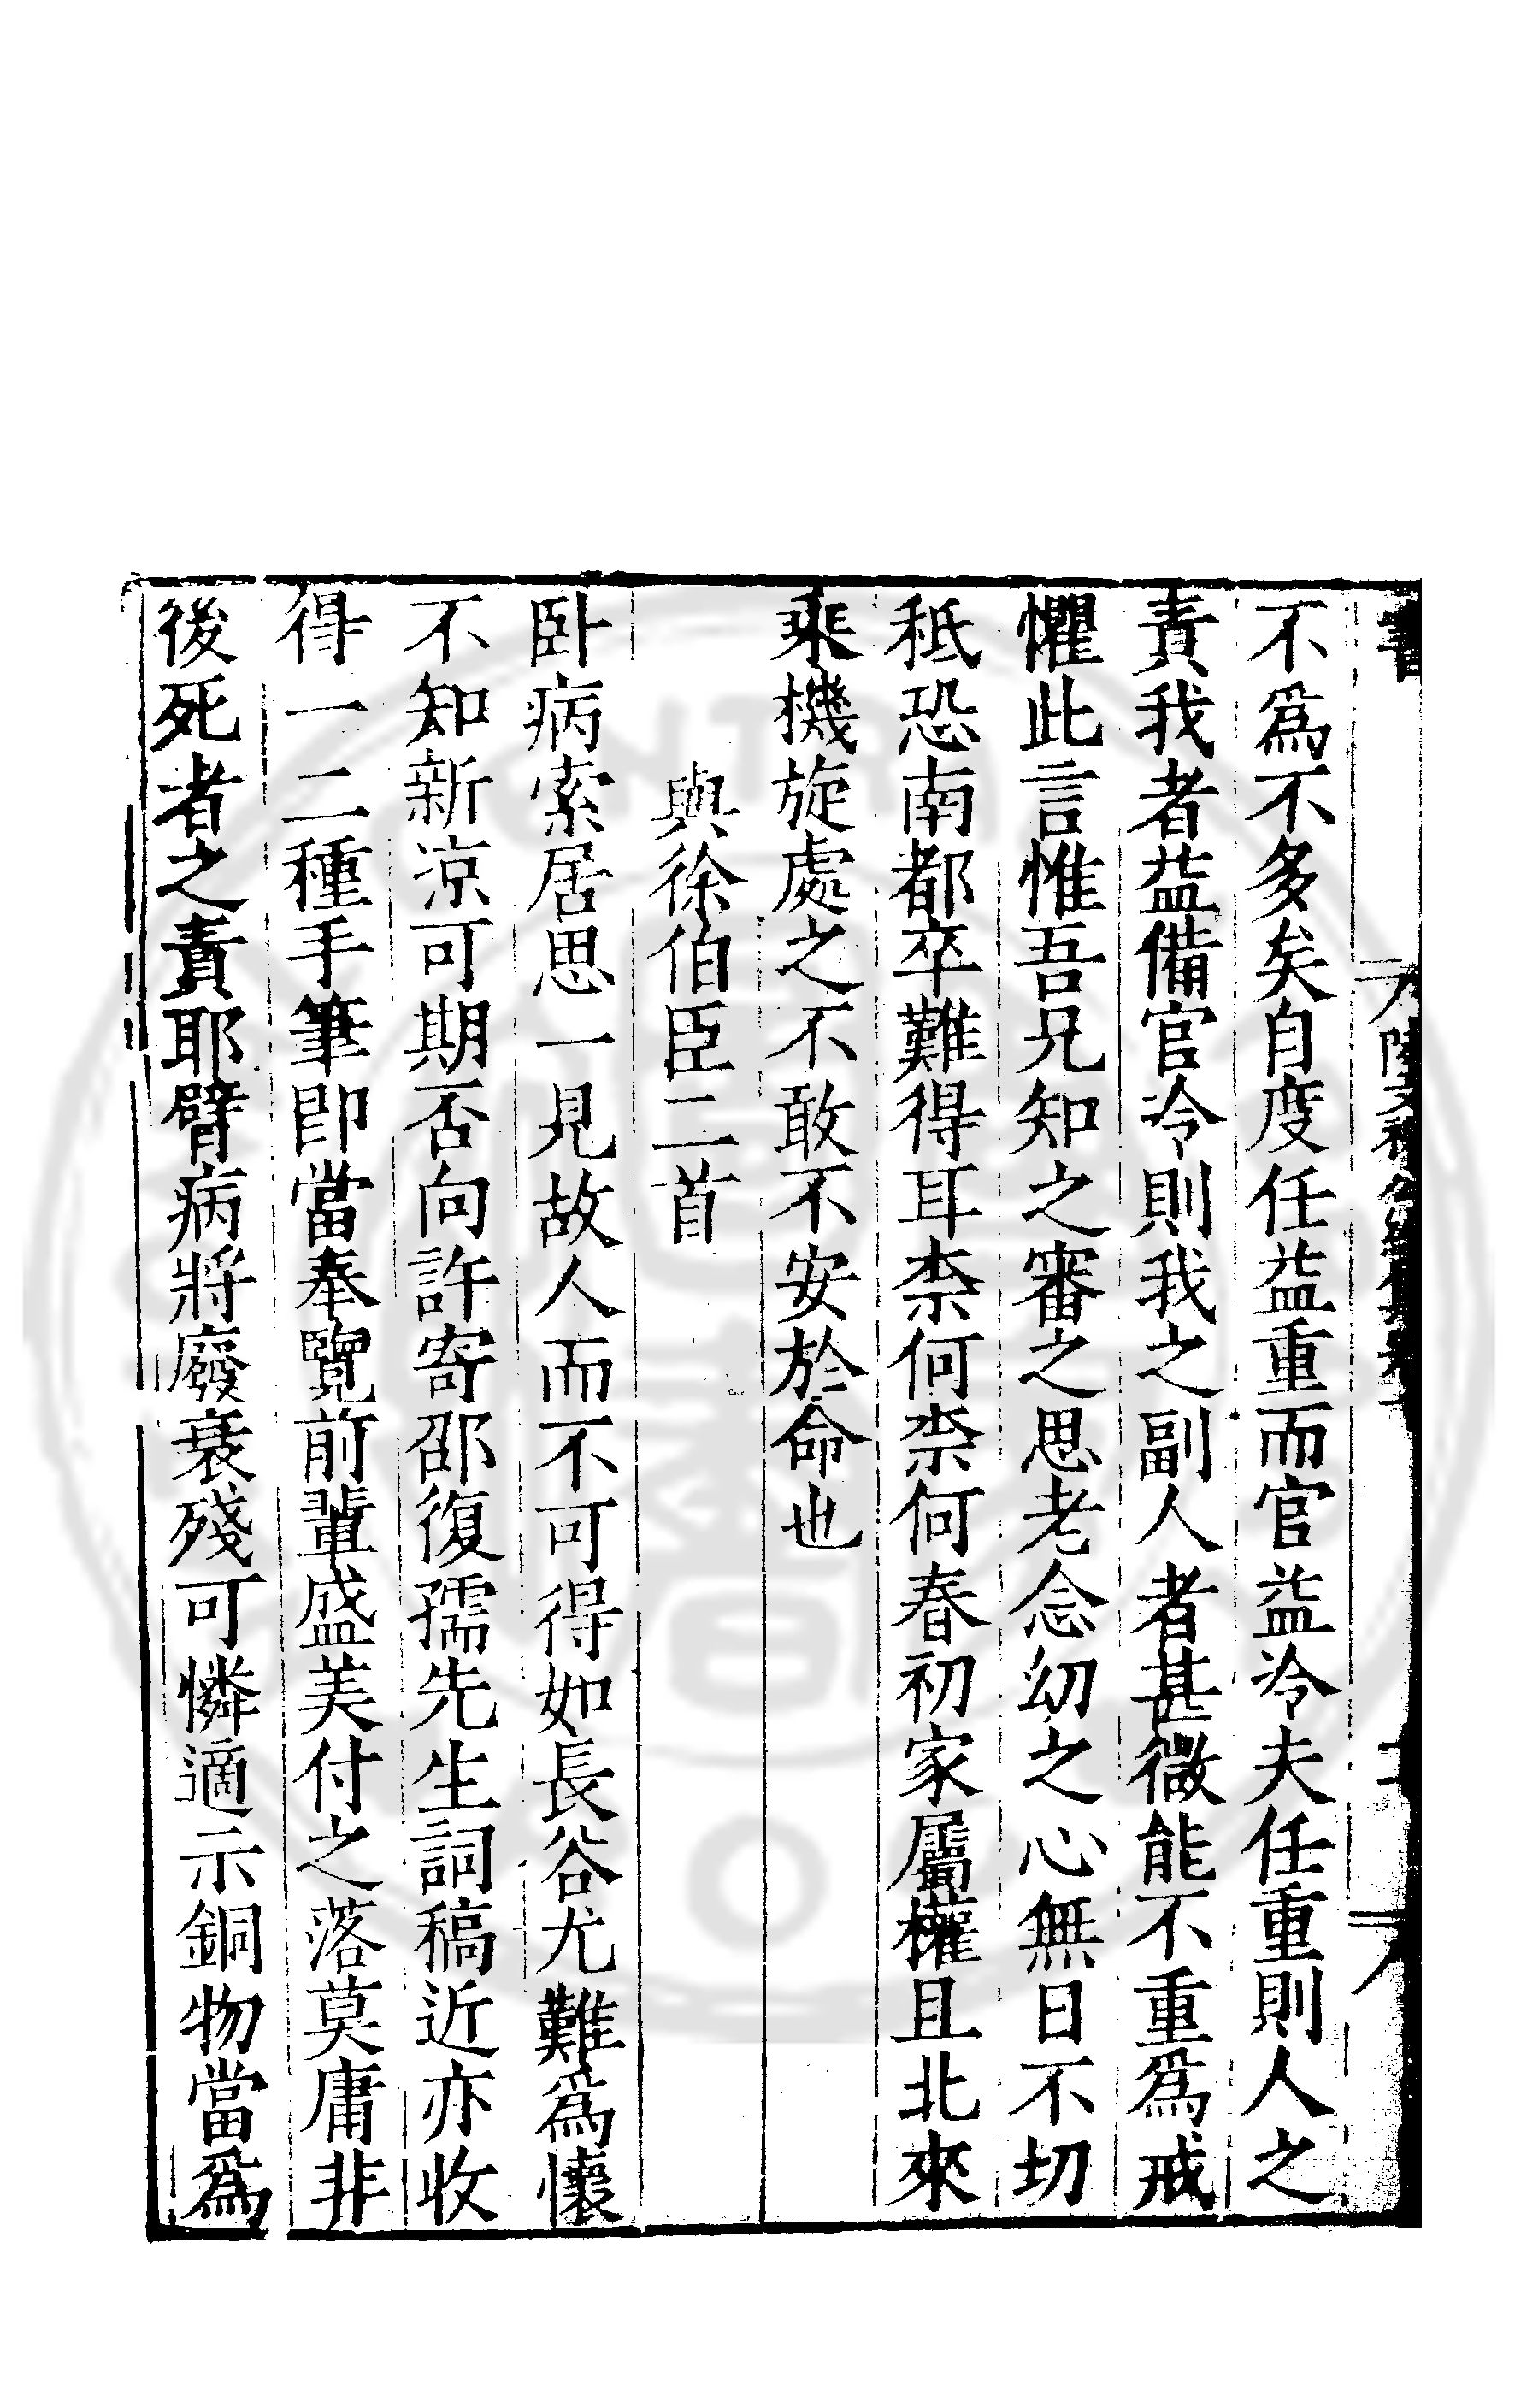 不爲不多矣自度任益重而官益冷夫任重則人之
責我者益備官冷則我之副人者甚微能不重爲戒
懼此言惟吾兄知之審之思老念幼之心無日不切
秪恐南都卒難得耳柰何柰何春初家屬權且北來
乘機旋處之不敢不安於命也
與徐伯臣二首
卧病索居思一見故人而不可得如長谷尤難爲懷
不知新涼可期否向許寄邵復孺先生詞稿近亦收
得一二種手筆即當奉覽前輩盛美付之落莫庸非
後死者之責耶臂病將廢衰殘可憐適示銅物當爲